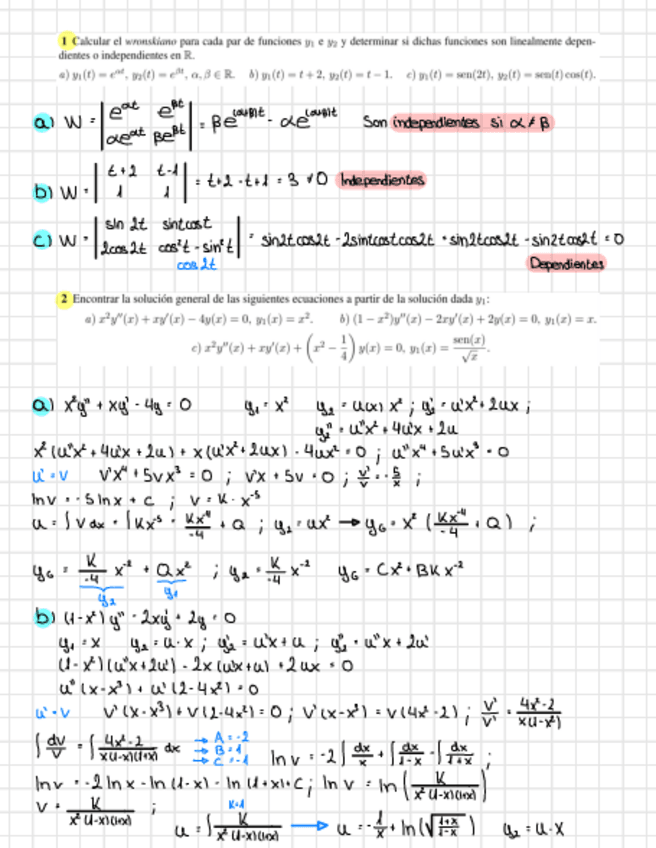 1 Calcular el wronskiano para cada par de funciones y₁ e y₂ y determinar si dichas funciones son linealmente depen-
dientes o independientes en ℝ.
a) y₁(t) = e^{αt}, y₂(t) = e^{βt}, α, β ∈ ℝ. b) y₁(t) = t + 2, y₂(t) = t − 1. c) y₁(t) = sen(2t), y₂(t) = sen(t) cos(t).
a) W = | e^{αt} e^{βt} ; αe^{αt} βe^{βt} | = βe^{(α+β)t} - αe^{(α+β)t} Son independientes si α ≠ β
b) W = | t+2 t-1 ; 1 1 | = t+2 - t+1 = 3 ≠ 0 Independientes
c) W = | sin 2t sint cost ; 2cos 2t cos²t - sin²t | = sin2t cos2t - 2sint cost cos2t = sin2t cos2t - sin2t cos2t = 0
cos 2t
Dependientes
2 Encontrar la solución general de las siguientes ecuaciones a partir de la solución dada y₁:
a) x²y″(x) + xy′(x) − 4y(x) = 0, y₁(x) = x². b) (1 − x²)y″(x) − 2xy′(x) + 2y(x) = 0, y₁(x) = x.
c) x²y″(x) + xy′(x) + (x² − 1/4) y(x) = 0, y₁(x) = sen(x)/√x.
a) x²y" + xy' - 4y = 0 y₁ = x² y₂ = u(x) x² ; y₂' = u'x² + 2ux ;
y₂" = u"x² + 4u'x + 2u
x² (u"x² + 4u'x + 2u) + x (u'x² + 2ux) - 4ux² = 0 ; u"x⁴ + 5u'x³ = 0
u' = v v'x⁴ + 5vx³ = 0 ; v'x + 5v = 0 ; v'/v = -5/x ;
ln v = -5 ln x + C ; v = K · x⁻⁵
u = ∫ v dx = ∫ Kx⁻⁵ = Kx⁻⁴/-4 + Q ; y₂ = ux² → y_G = x² (Kx⁻⁴/-4 + Q) ;
y_G = K/-4 x⁻² + Qx² ; y₂ = K/-4 x⁻² y_G = Cx² + BKx⁻²
y₂ y₁
b) (1-x²) y" - 2xy' + 2y = 0
y₁ = x y₂ = u·x ; y₂' = u'x + u ; y₂" = u"x + 2u'
(1-x²)(u"x + 2u') - 2x (u'x + u) + 2ux = 0
u" (x - x³) + u' (2 - 4x²) = 0
u' = v v' (x - x³) + v (2 - 4x²) = 0 ; v' (x - x³) = v (4x² - 2) ; v'/v = 4x²-2/x(1-x²)
∫ dv/v = ∫ 4x²-2/x(1-x)(1+x) dx → A = -2 → B = 1 → C = -1 ln v = -2 ∫ dx/x + ∫ dx/1-x - ∫ dx/1+x ;
ln v = -2 ln x - ln (1-x) - ln (1+x) + C ; ln v = ln (K/x²(1-x)(1+x))
v = K/x²(1-x)(1+x) ; K=1
u = ∫ K/x²(1-x)(1+x) → u = -1/x + ln (√(1+x/1-x)) y₂ = u·x